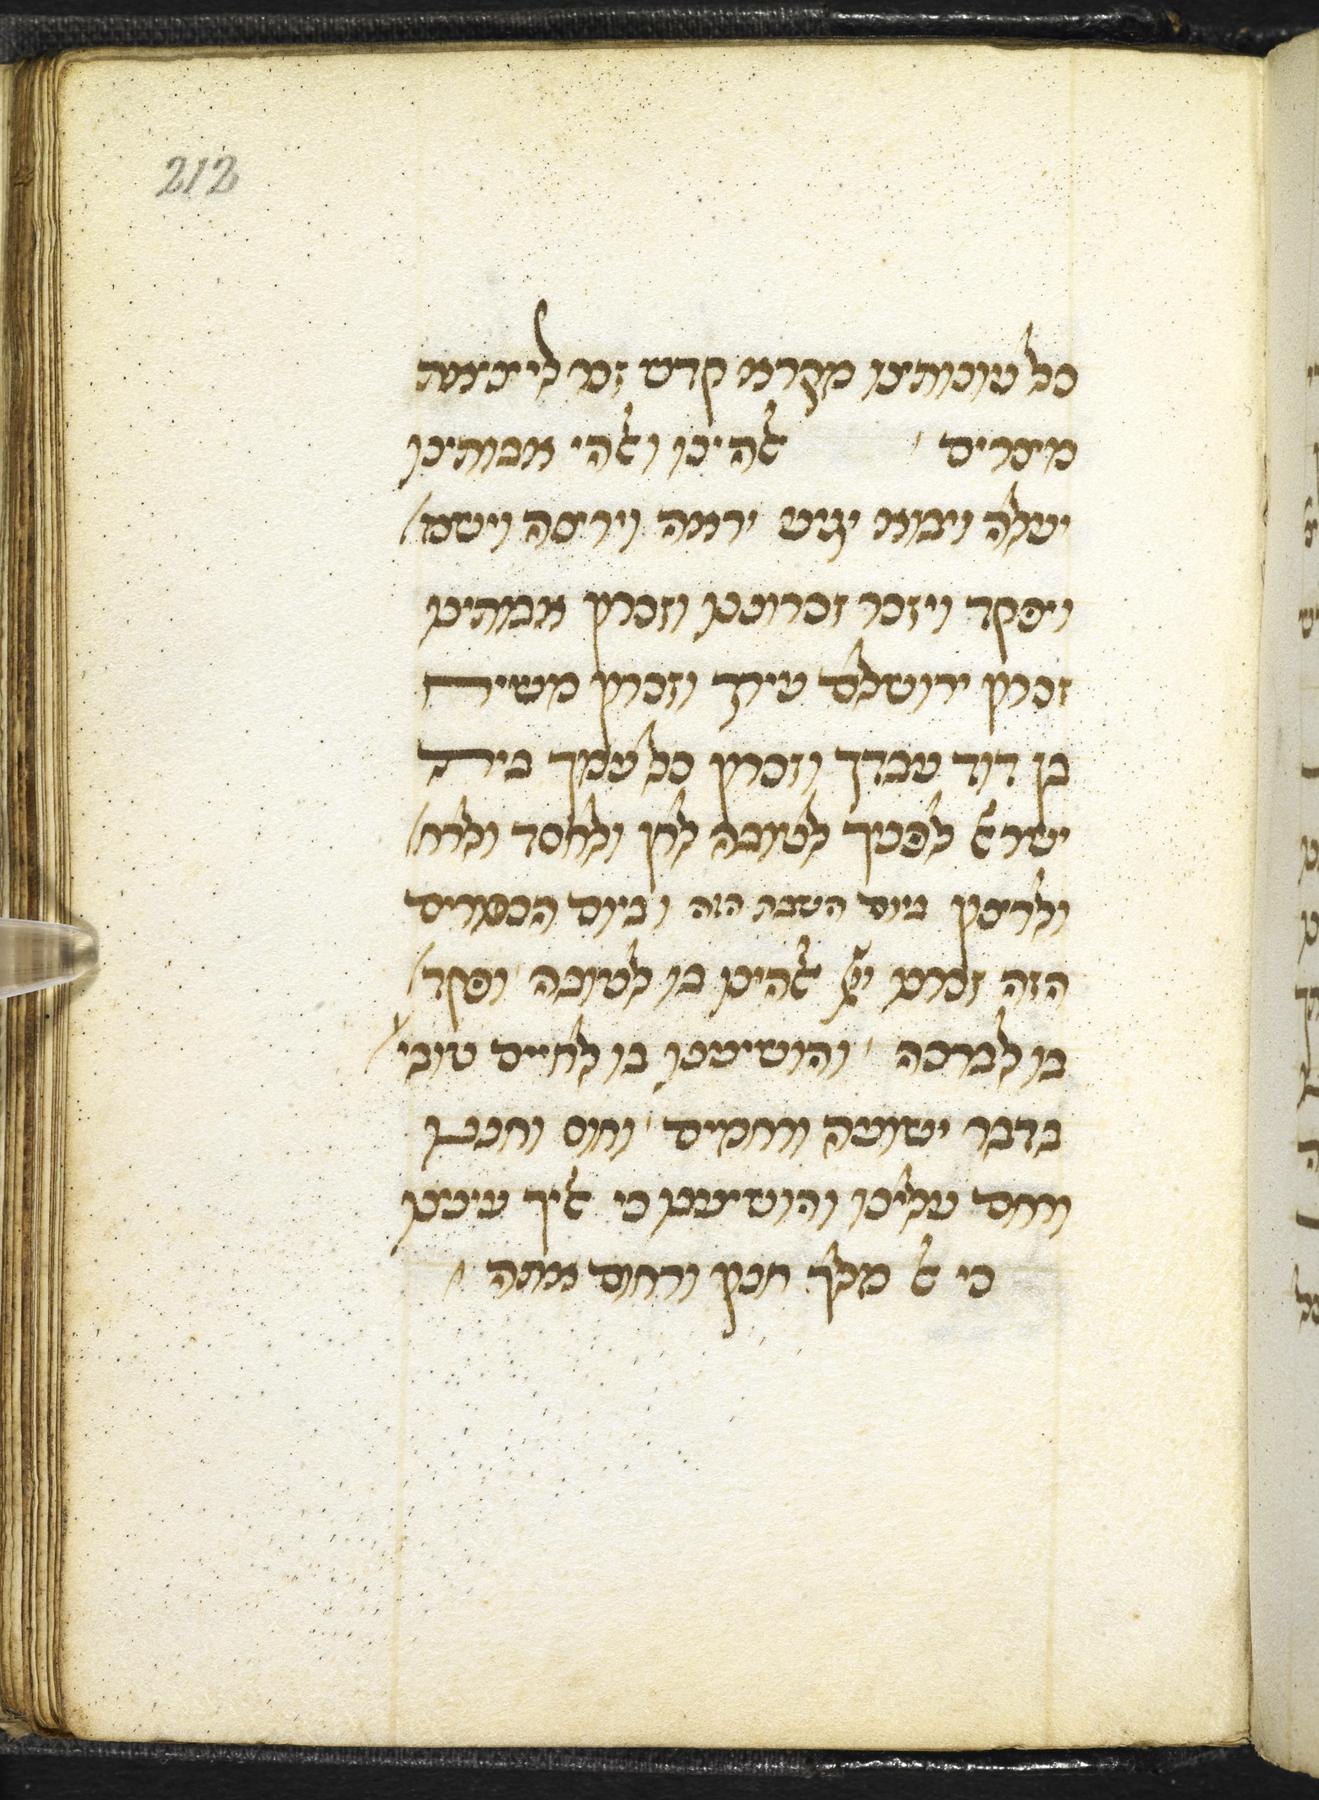 212
כל עונותינו מקרא קדש זכר ליציאת
מצרים אלהינו ואלהי אבותינו
יעלה ויבוא יגיע יראה וירצה וישמ
ויפקד ויזכר זכרוננו וזכרון אבותינו
זכרון ירושלם עירך וזכרון משיח
בן דוד עבדך וזכרון כל עמך בית
ישראל לפניך לטובה לחן ולחסד ולרח
ולרצון ביום השבת הזה וביום הכפורים
הזה זכרנו יי אלהינו בו לטובה ופקד
בו לברכה והושיענו בו לחיים טובי
בדבר ישועה ורחמים וחוס וחננו
ורחם עלינו והושיענו כי אליך עינינו
כי אל מלך חנון ורחום אתה